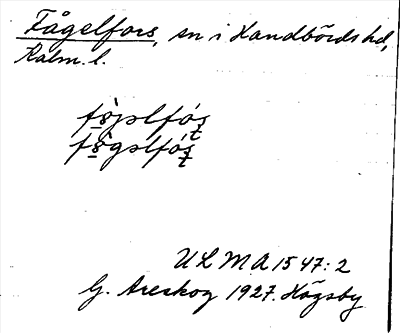 Fågelfors, sn i Handbörds hd,
Kalm. l.
fò̱jəlfós̱
fò̱gəlfós̱
ULMA 1547:2
G. Areskog 1927. Högsby